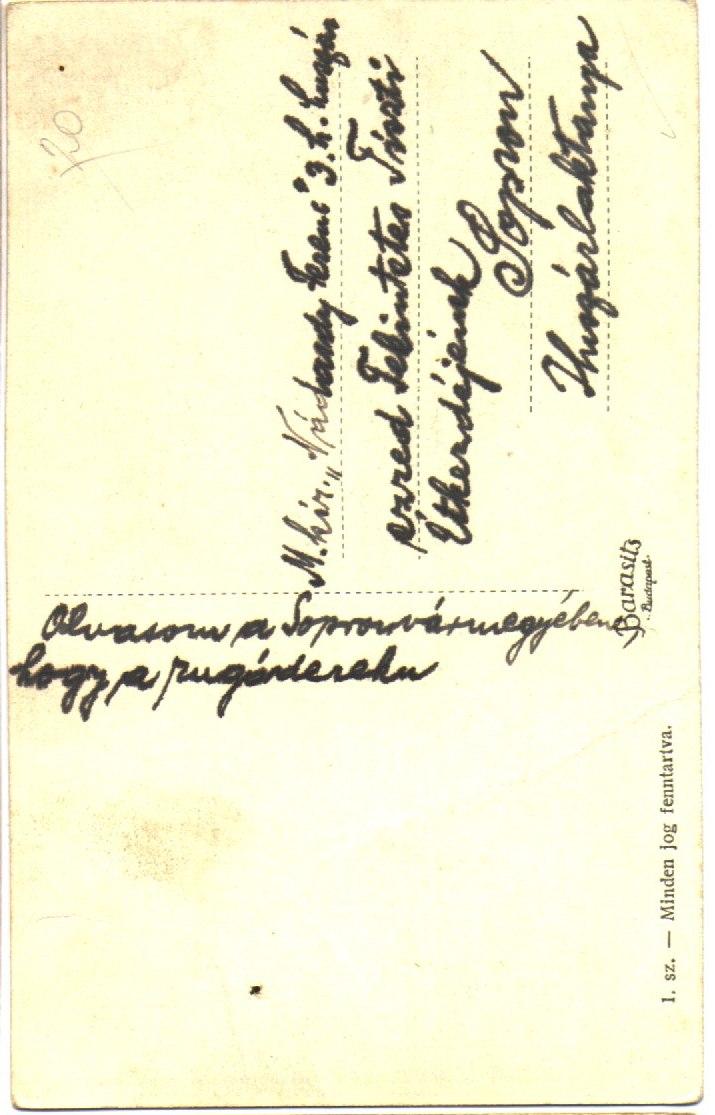 20
M. kir. „Nádasdy Ferenc" 3. h. huszár
ezred Tekintetes Tiszti
Étkezdéjének
Sopron
Huszárlaktanya
Olvasom a Sopronvármegyében,
hogy a rugódereku
Barasits
Budapest.
1. sz. — Minden jog fenntartva.